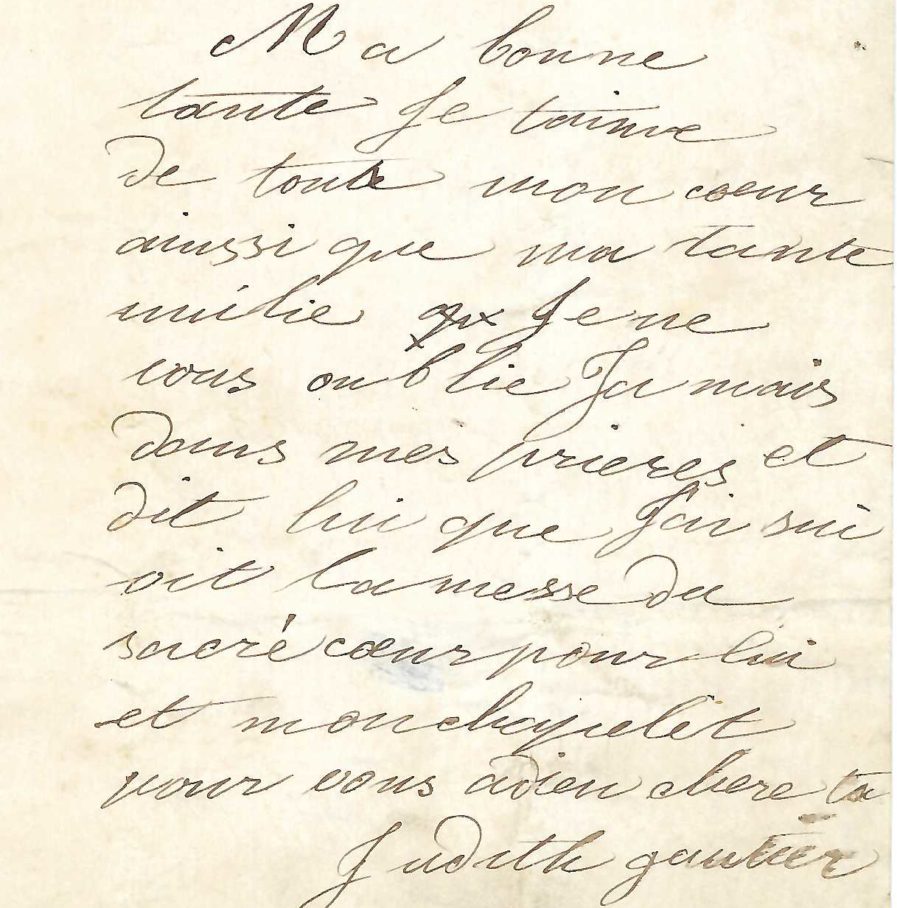 Ma bonne
tante Je taime
de toute mon coeur
ainssi que ma tante
emilie Je ne
vous oublie Ja mais
dans mes prieres et
dit lui que J'ai sui
vit la messe du
sacré coeur pour lui
et mon chapelet
pour vous adieu chere ta
Judith gautier